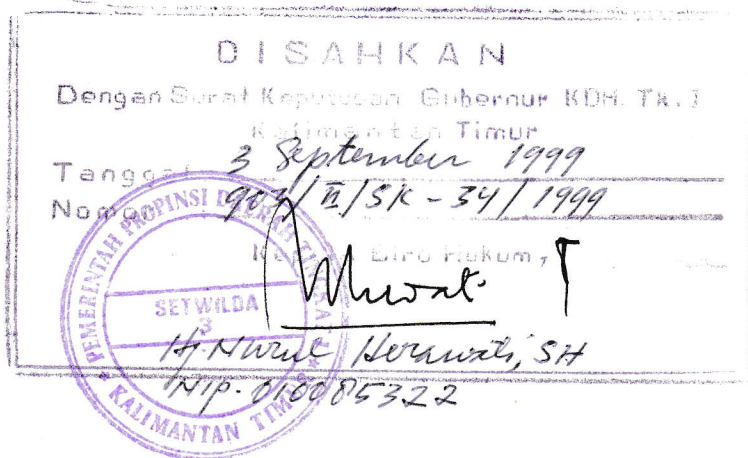 DISAHKAN
Dengan Surat Keputusan Gubernur KDH. Tk. I
Kalimantan Timur
Tanggal 3 September 1999
Nomor 903/II/SK - 34/1999
Kepala Biro Hukum,
Hj. Nurul Herawati, SH
NIP. 010085322
PEMERINTAH PROPINSI DAERAH TINGKAT I
SETWILDA
3
KALIMANTAN TIMUR